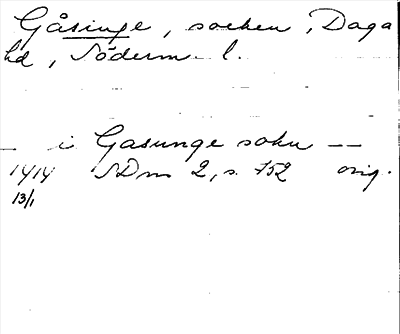 Gåsinge, socken, Daga
hd, Söderm. l.
— i Gasunge sokn — —
1414 SDns 2, s. 752 orig.
13/1